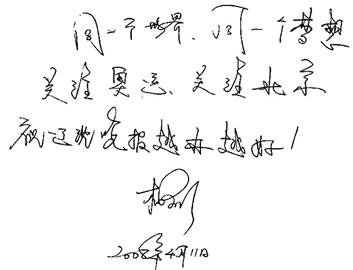 同一个世界、同一个梦想
关注奥运、关注北京
祝辽沈晚报越办越好!
2008年4月11日